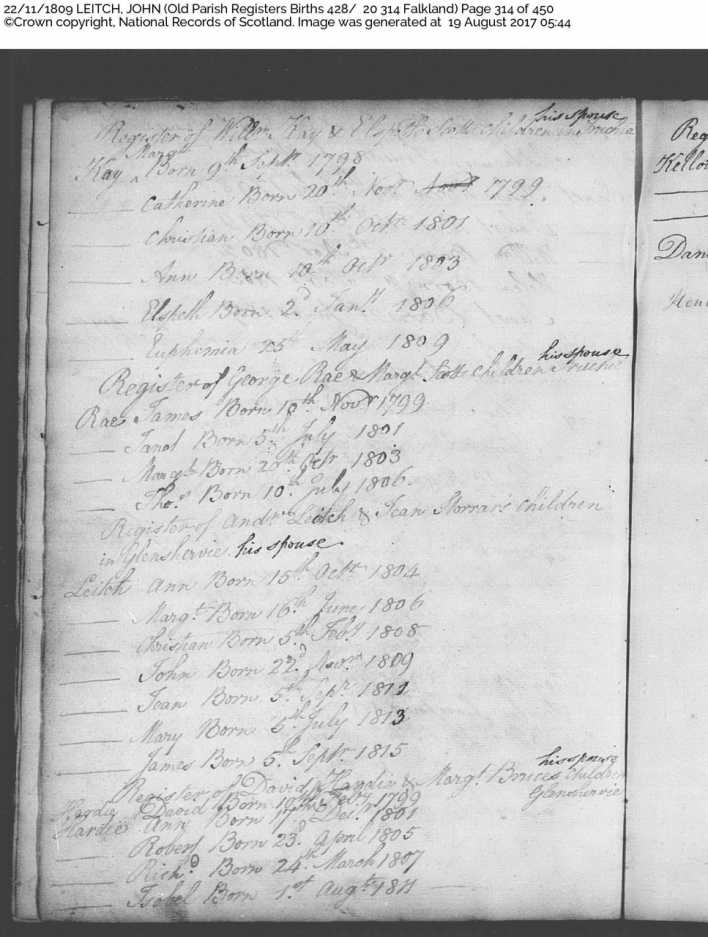 22/11/1809 LEITCH, JOHN (Old Parish Registers Births 428/ 20 314 Falkland) Page 314 of 450
©Crown copyright, National Records of Scotland. Image was generated at 19 August 2017 05:44
his spouse
Register of Willm Kay & Elspeth Scotts children in Fruchia
Margt
Kay ‸ Born 9th Septr 1798
Catherine Born 20th Novr 1799
Christian Born 10th Octr 1801
Ann Born 10th Octr 1803
Elspeth Born 2d Jany 1806
Euphemia 25th May 1809
his spouse
Register of George Rae & Margt Scotts Children
Rae James Born 10th Novr 1799
Janet Born 5th July 1801
Born Octr 1803
Thos Born 10th July 1806
Register of Andw Leitch & Jean Storrar's Children
in Glenshervie his spouse
Leitch Ann Born 15th Octr 1804
Margt Born 16th June 1806
Christian Born 5th Feby 1808
John Born 22d Novr 1809
Jean Born 5th Septr 1811
Mary Born 6th July 1813
James Born 5th Septr 1815
his spouse
Register of David & Margt Bruces Children
Glenshervie
David Born Feby 1799
Hardie Ann Born 17th Decr 1801
Robert Born 23d April 1805
Richd Born 24th March 1807
Isobel Born 1st Augt 1811
Reg
Dan